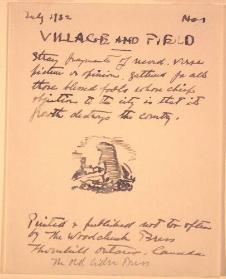 July 1932 No 1
VILLAGE AND FIELD
Stray fragments of record, verse
picture or opinion, gathered for all
those blessed fools whose chief
objection to the city is that its
growth destroys the country.
Printed & published not too often
by the Woodchuck Press
Thornhill Ontario, Canada
The Old Cider Press